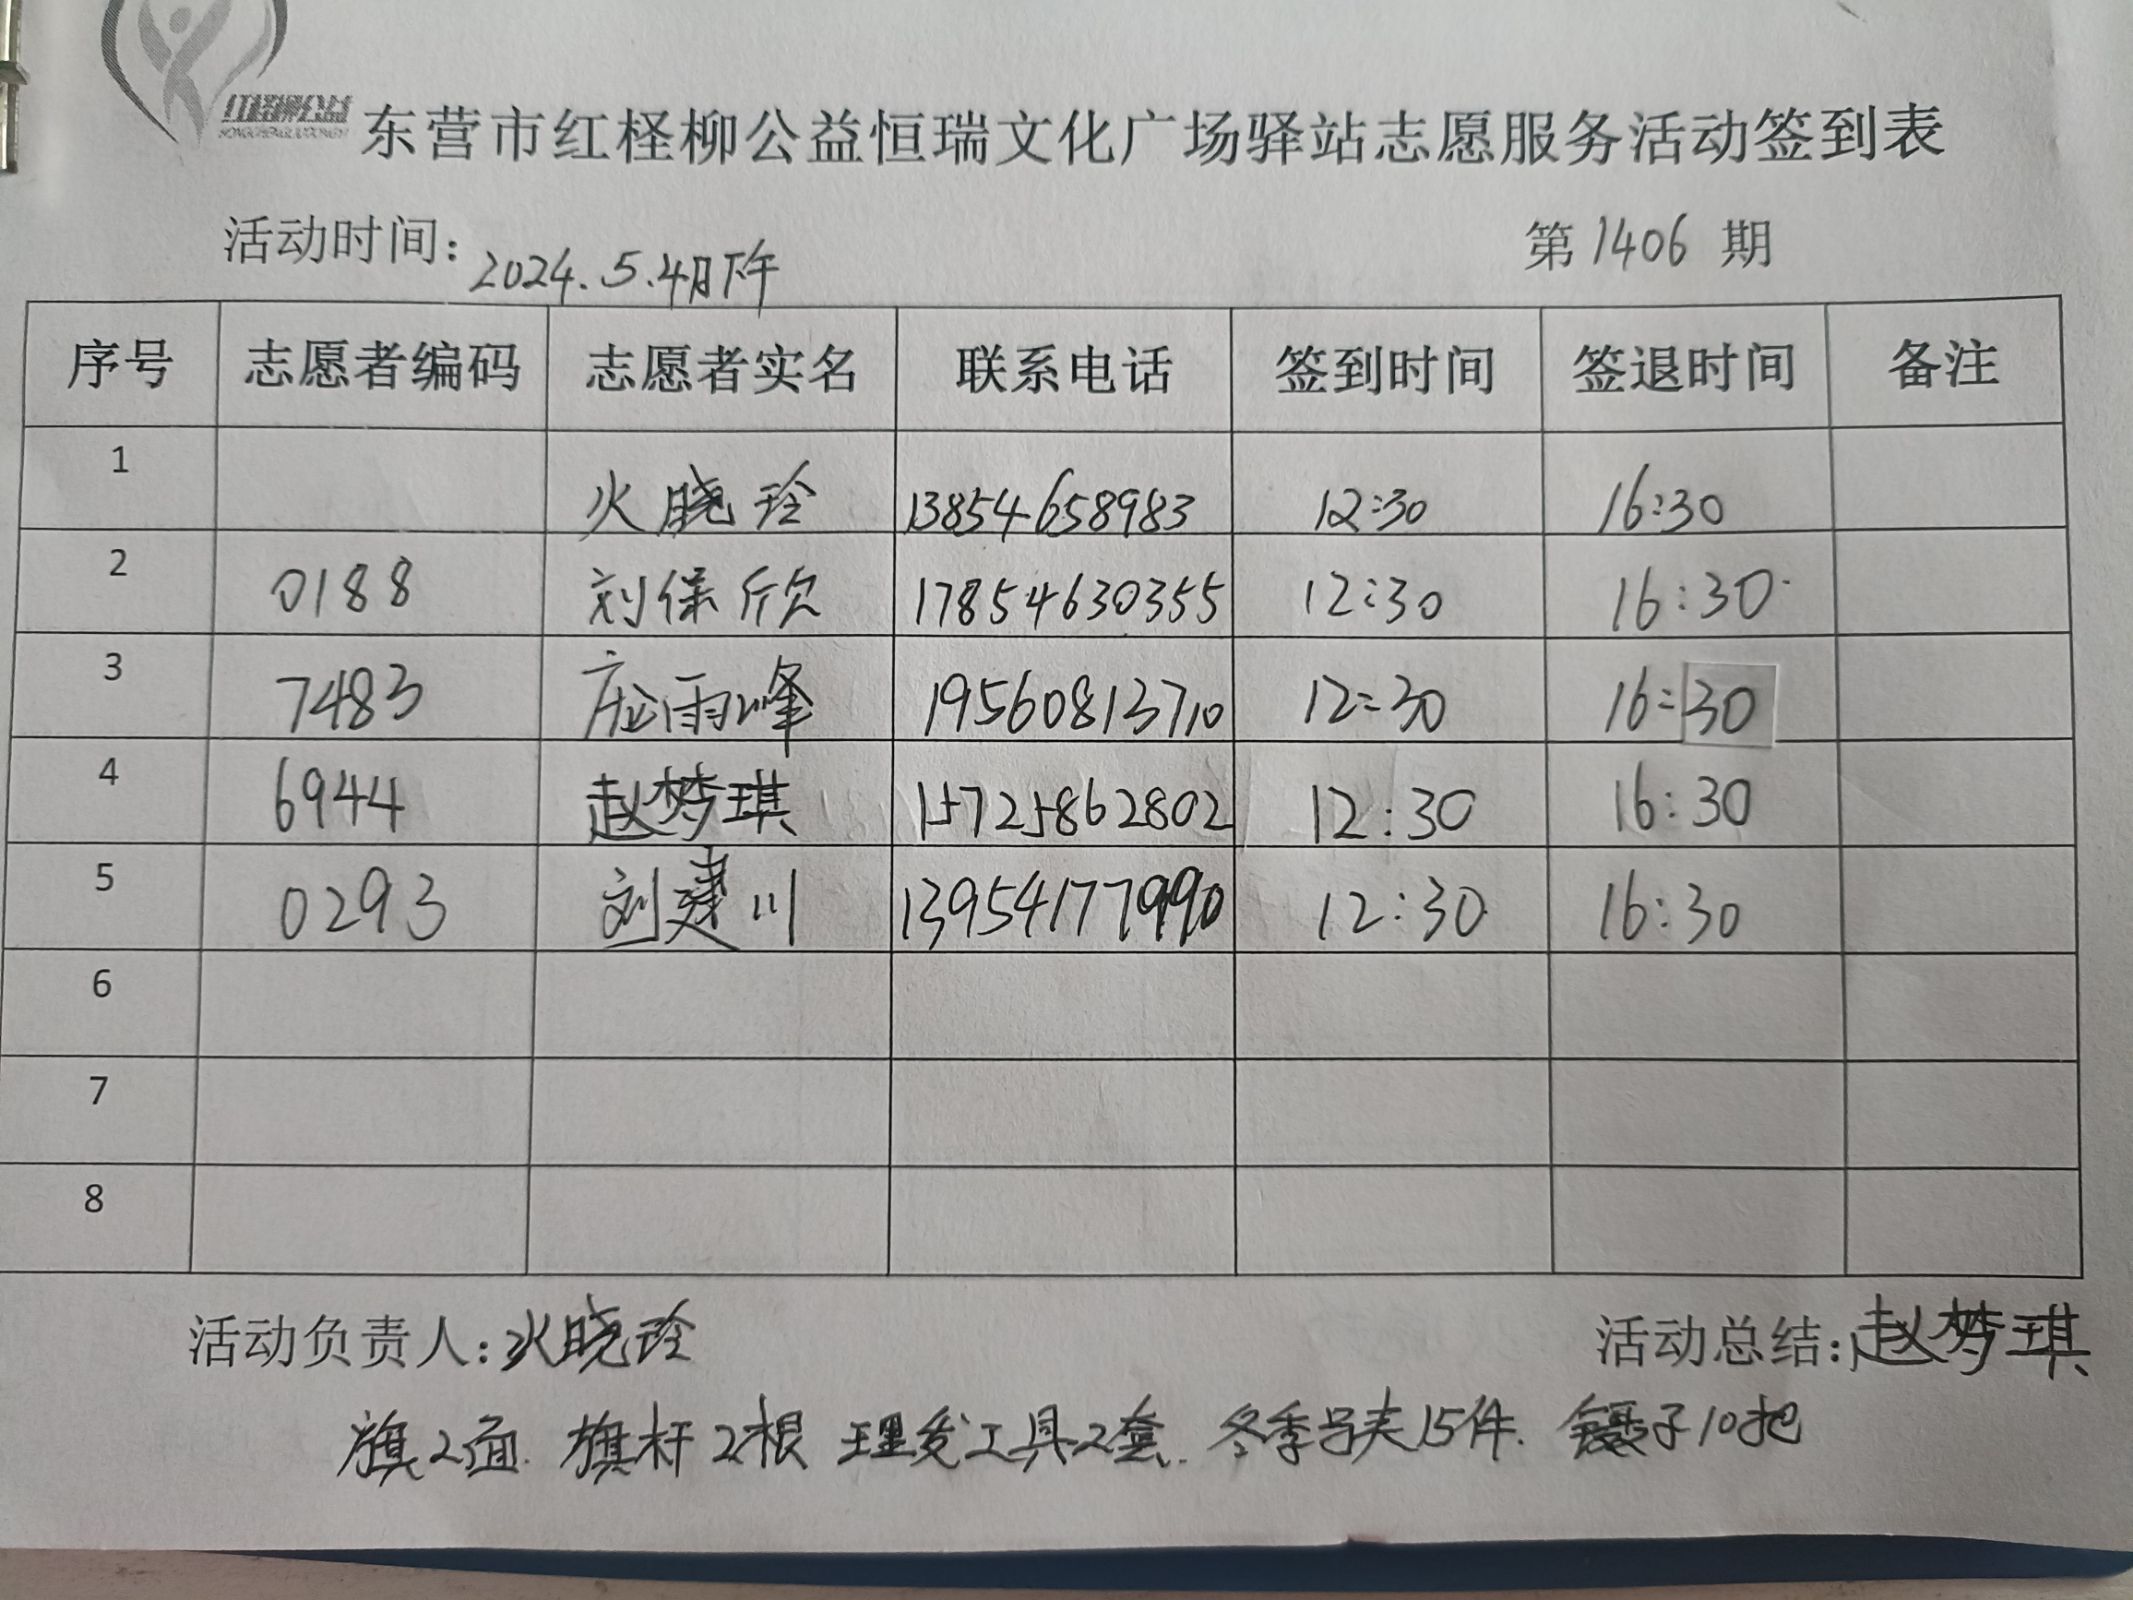 红柽柳公益
HONGCHENGLIUGONGYI
东营市红柽柳公益恒瑞文化广场驿站志愿服务活动签到表
活动时间：2024.5.4日下午 第1406期
序号 志愿者编码 志愿者实名 联系电话 签到时间 签退时间 备注
1 火晓玲 13854658983 12:30 16:30
2 0188 刘保欣 17854630355 12:30 16:30
3 7483 应雨峰 19560813710 12:30 16:30
4 6944 赵梦琪 15725862802 12:30 16:30
5 0293 刘建川 13954177990 12:30 16:30
6
7
8
活动负责人：火晓玲 活动总结：赵梦琪
旗2面. 旗杆2根 理发工具2套. 冬季马夹15件. 镊子10把